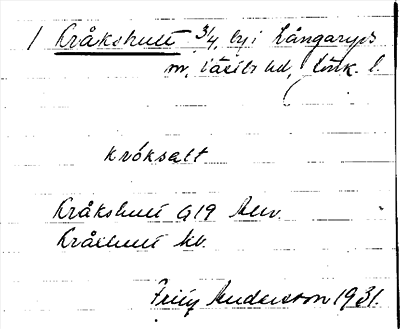 1 Kråkshult 3/4, by i Långaryds
sn, Västbo hd, Jönk. l.
króksalt
Kråkshult G19 Alw.
Kråkhult kb.
Fritz Andersson 1931.